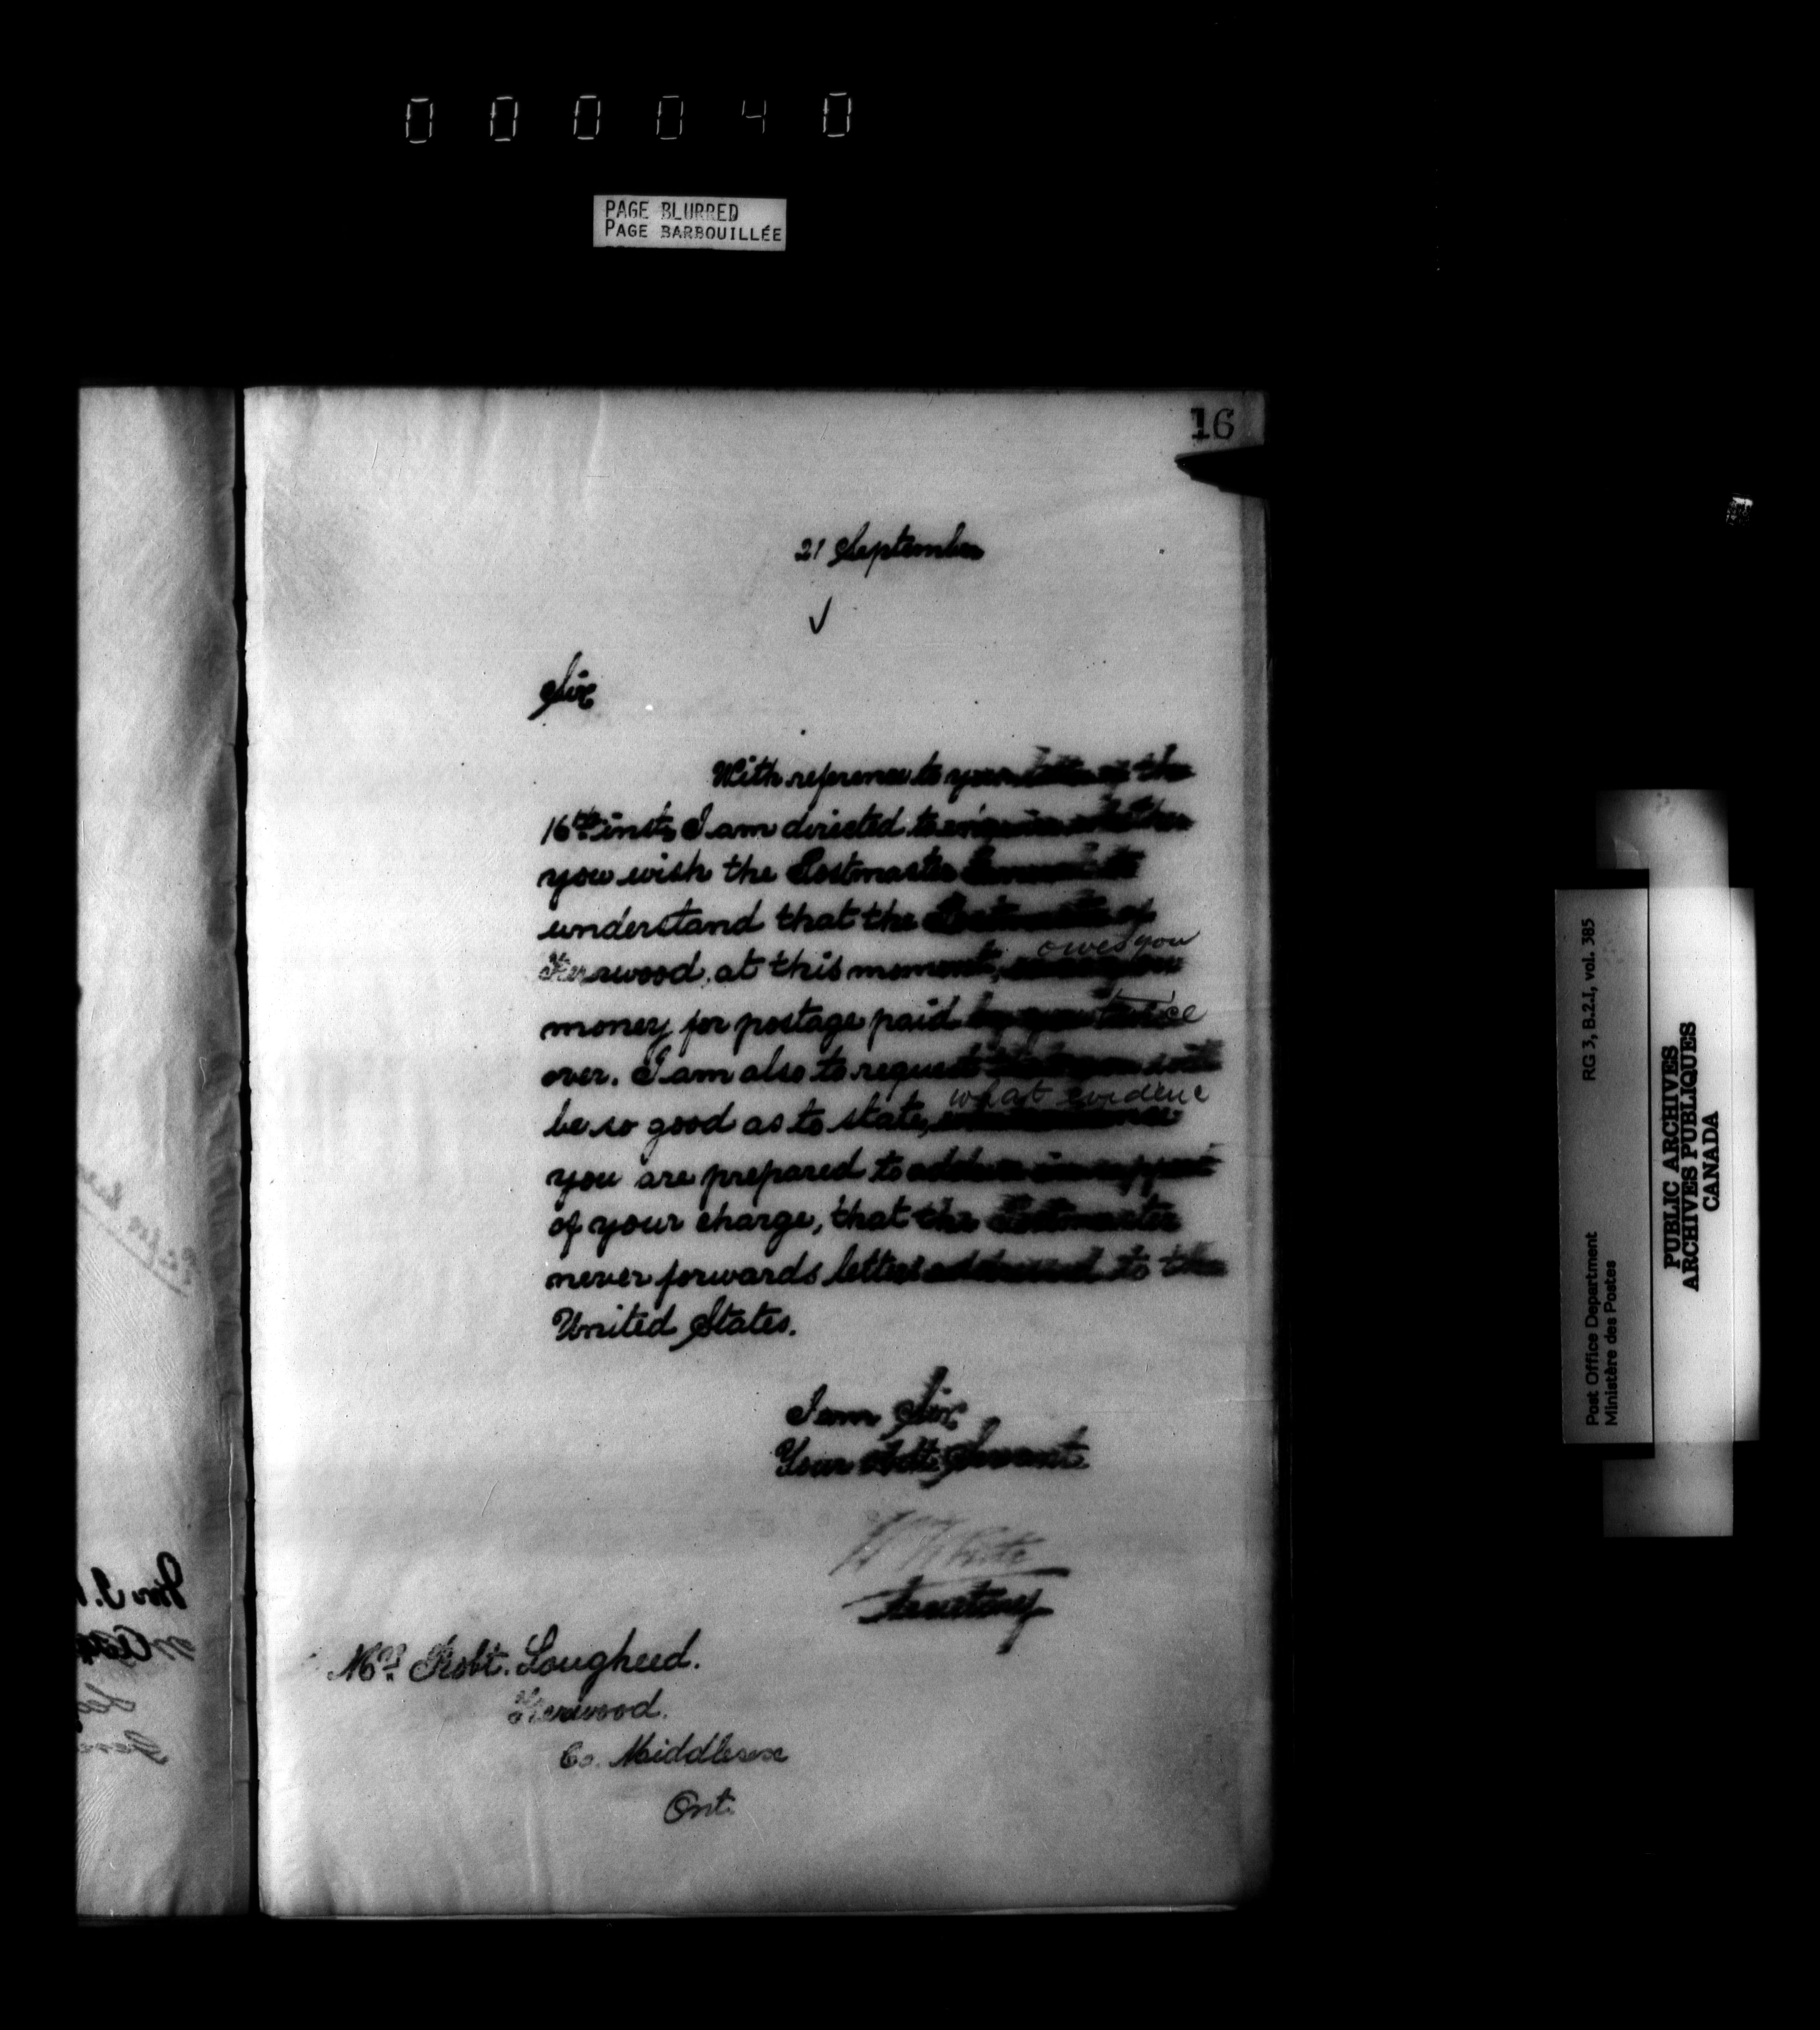 000040
PAGE BLURRED
PAGE BARBOUILLÉE
16
21 September
Sir
With reference to your letter of the
16th inst, I am directed to enquire whether
you wish the Postmaster General to
understand that the Postmaster of
Kerwood, at this moment, owes you
money for postage paid by you twice
over. I am also to request that you will
be so good as to state, what evidence
you are prepared to adduce in support
of your charge, that the Postmaster
never forwards letters addressed to the
United States.
I am Sir
Your Obdt. Servant
W White
Secretary
Mr. Robt. Lougheed.
Kerwood.
Co. Middlesex
Ont.
Post Office Department
Ministère des Postes
RG 3, B.2.I, vol. 385
PUBLIC ARCHIVES
ARCHIVES PUBLIQUES
CANADA